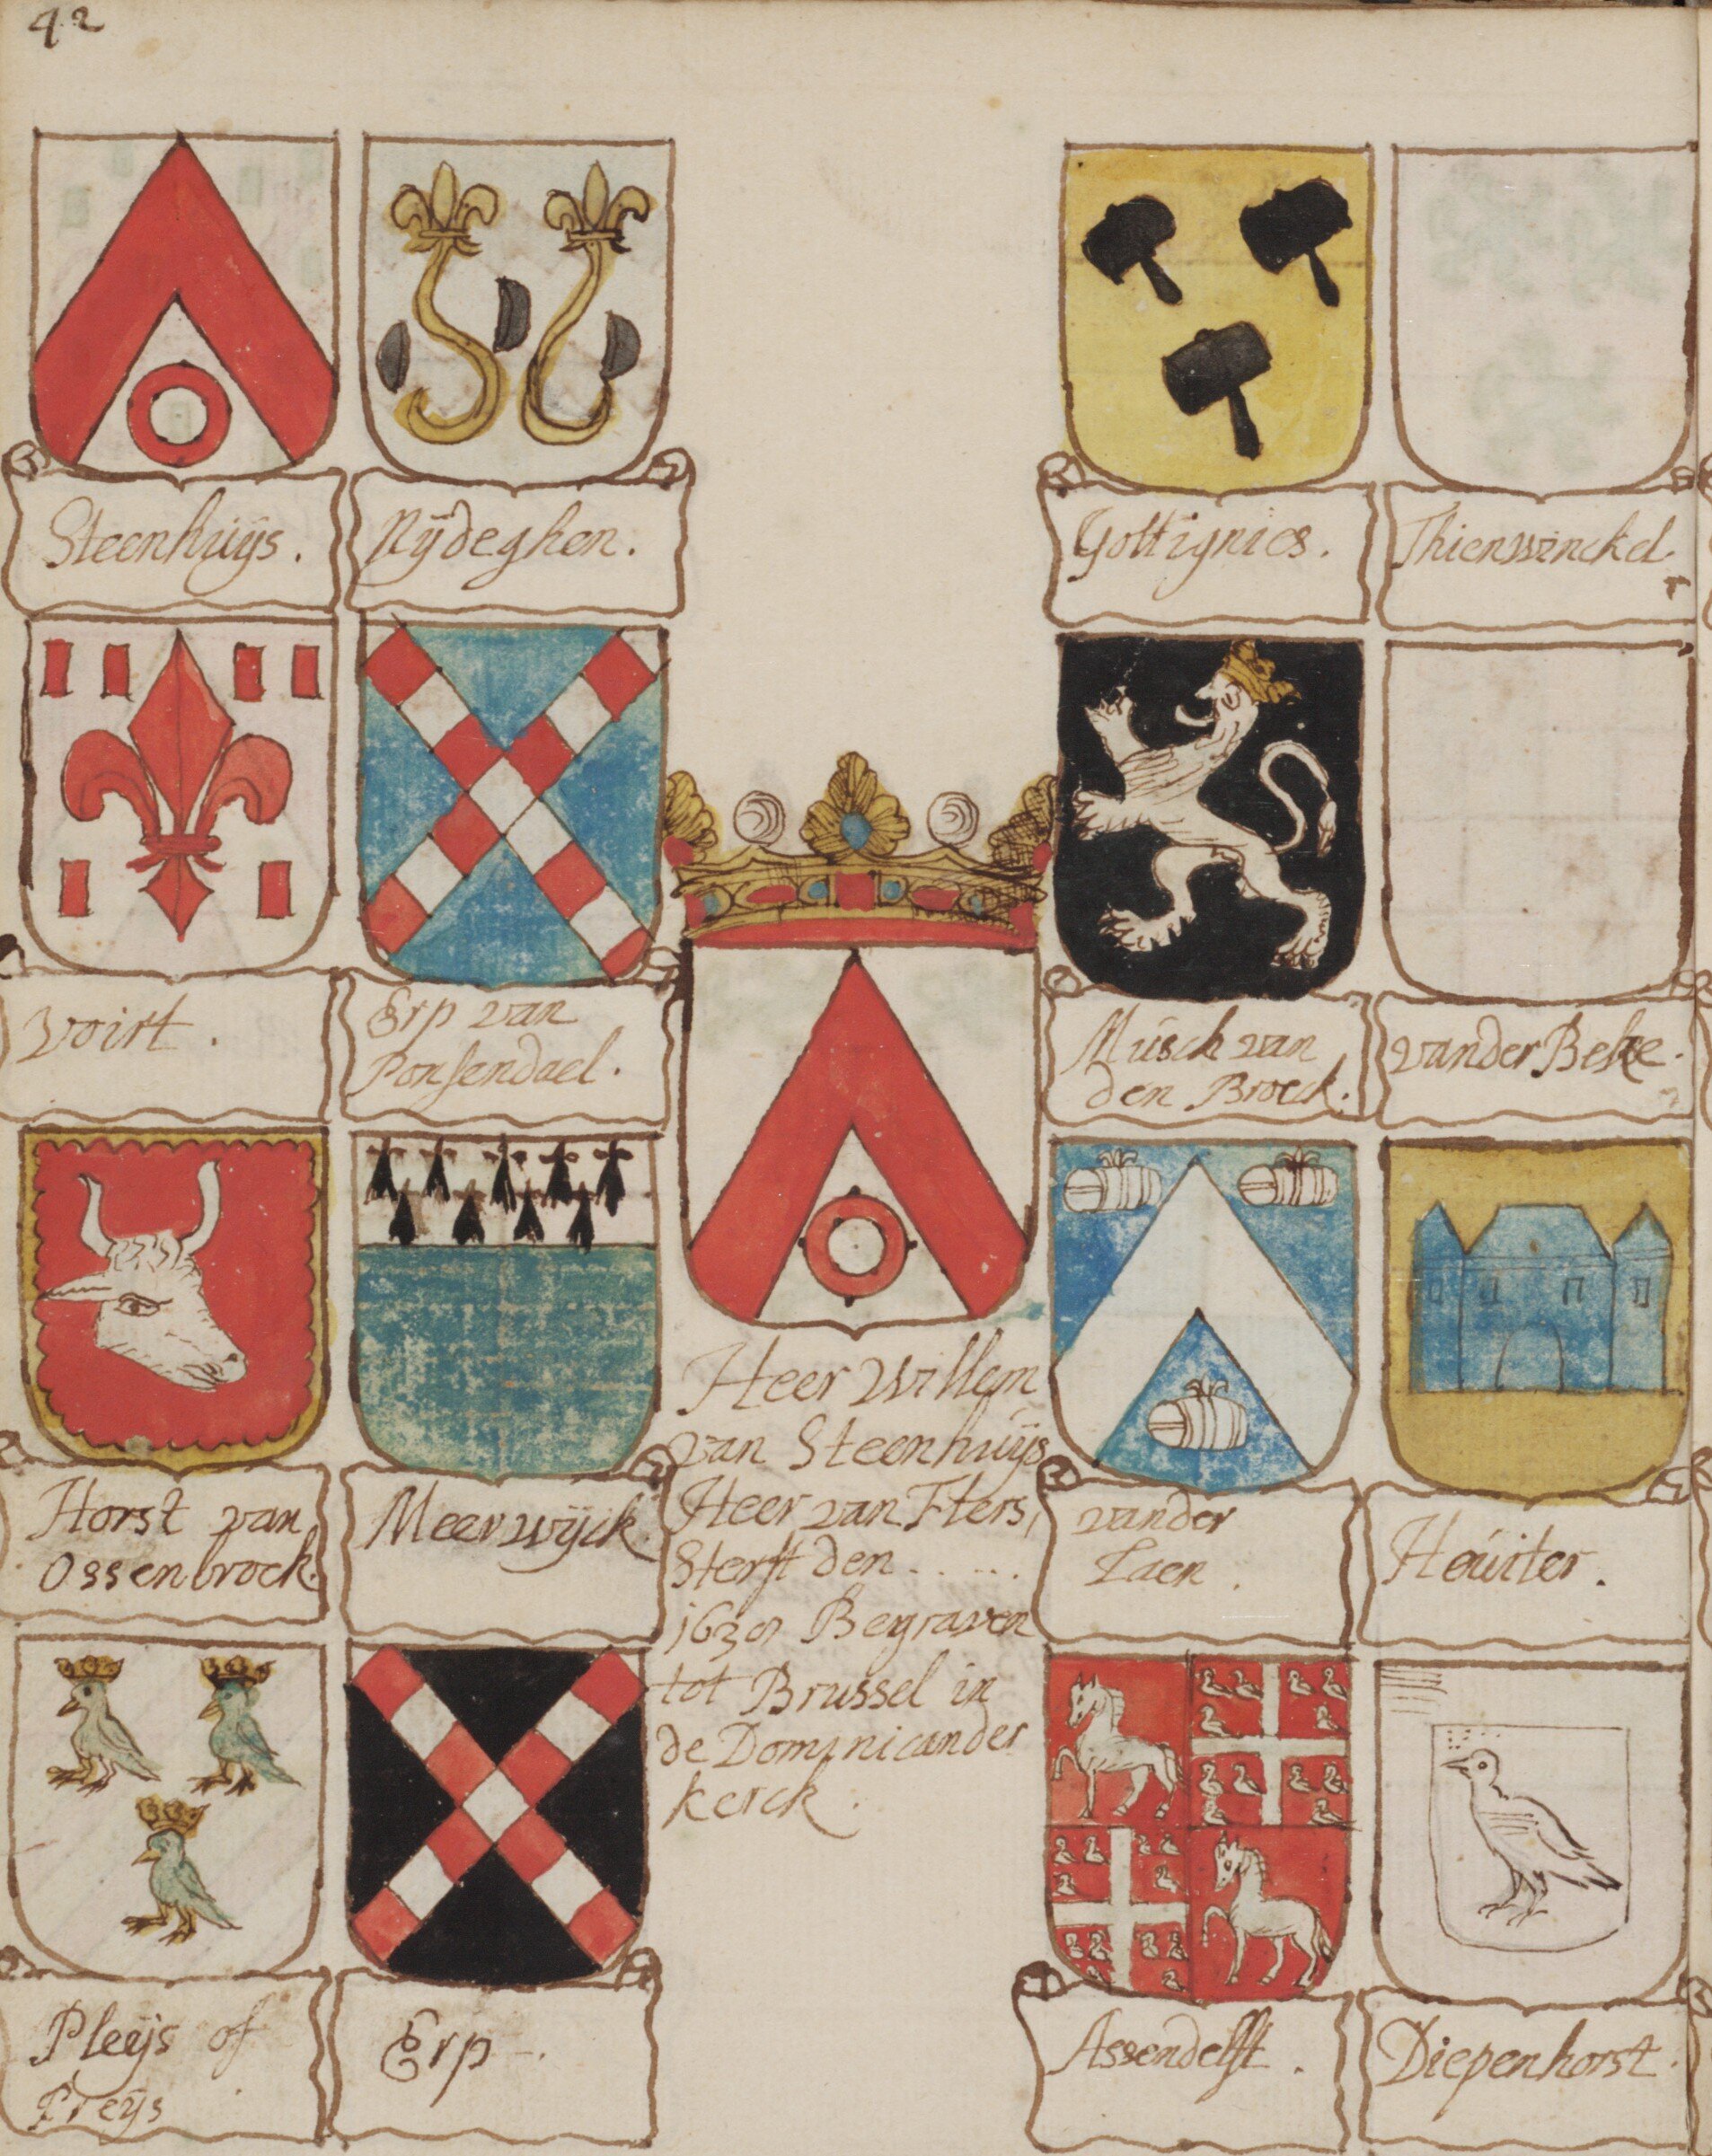 42
Steenhuÿs.
Nÿdeghen.
Gottignies.
Thienwinckel
Voirt.
Erp van
Ponsendael.
Musch van
den Broeck.
vander Beke.
Horst van
Ossenbroek.
Meerwÿck.
Heer Willem
van Steenhuÿs
Heer van Flers,
Sterft den . . . . .
1638 Begraven
tot Brussel in
de Dominicander
kerck.
vander
Laen.
Heuiter.
Pleÿs of
Preÿs
Erp.
Assendelft.
Diepenhorst.